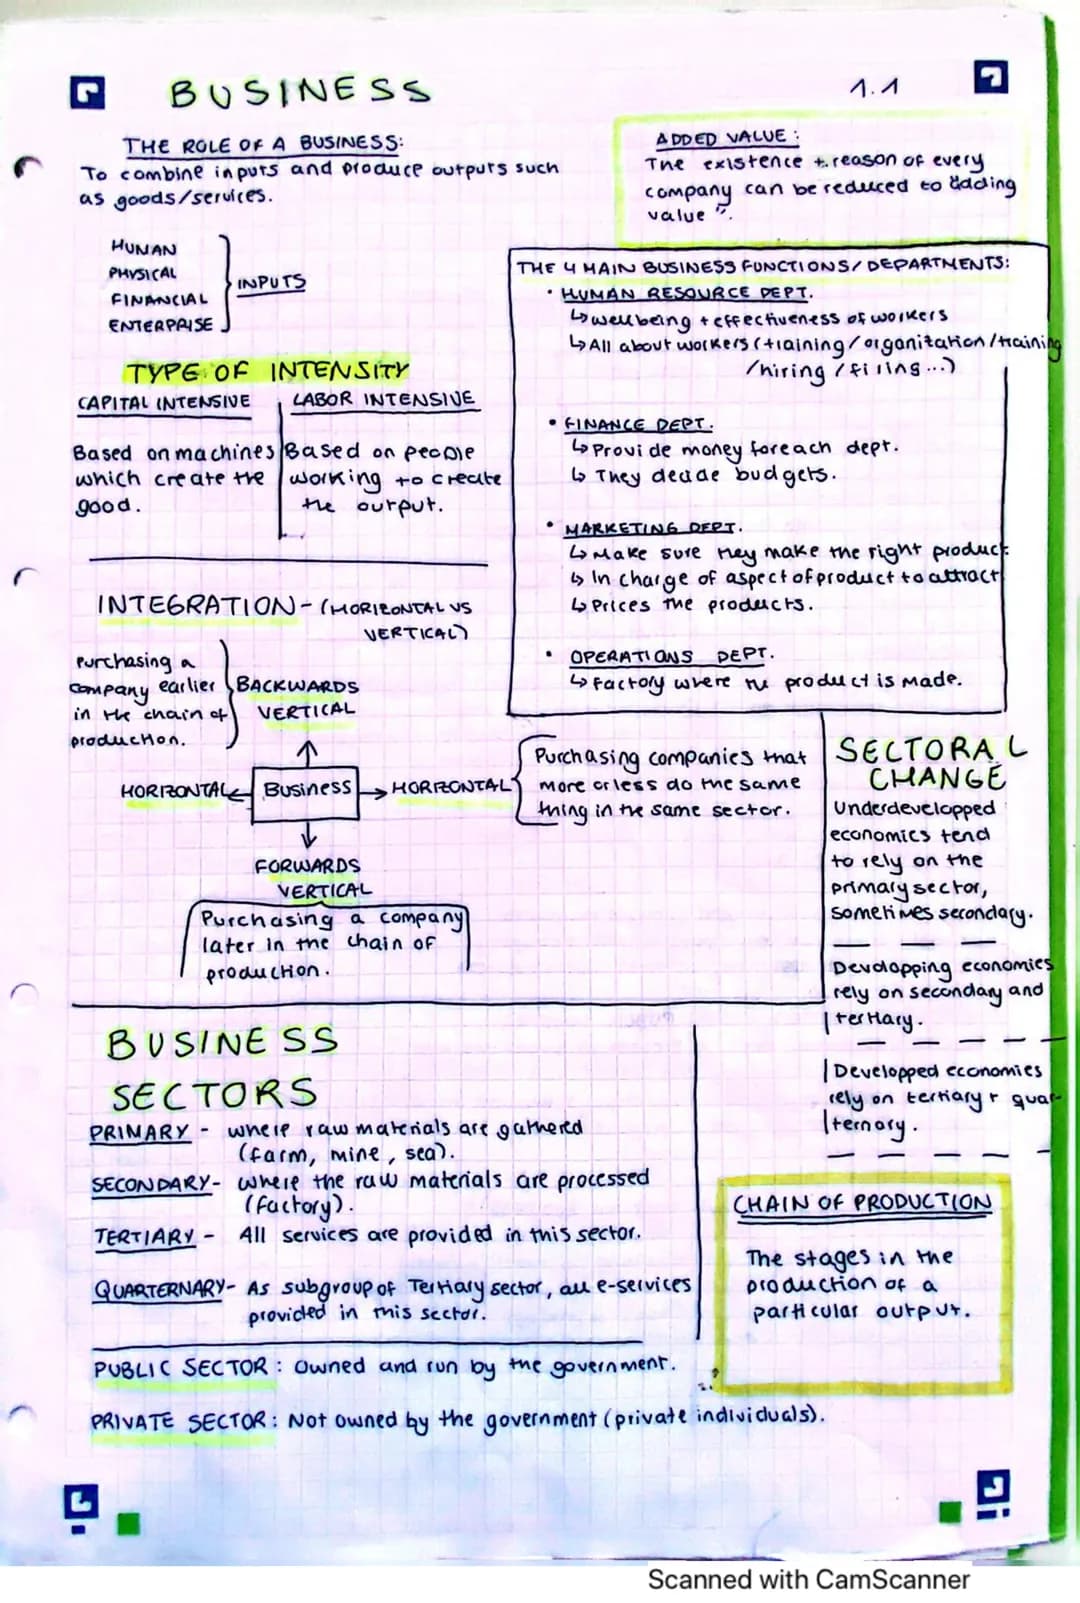 BUSINESS
1.1
THE ROLE OF A BUSINESS:
To combine inputs and produce outputs such
as goods/services.
HUMAN
PHYSICAL
FINANCIAL
ENTERPRISE
INPUTS
ADDED VALUE:
The existence + reason of every
company can be reduced to "adding
value".
THE 4 MAIN BUSINESS FUNCTIONS/DEPARTMENTS:
• HUMAN RESOURCE DEPT.
↳ wellbeing + effectiveness of workers
↳ All about workers (training/organitation/training
/hiring/firing...)
• FINANCE DEPT.
↳ Provide money foreach dept.
↳ They decide budgets.
• MARKETING DEPT.
↳ Make sure they make the right product
↳ In charge of aspect of product to attract
↳ Prices the products.
• OPERATIONS DEPT.
↳ Factory where the product is made.
TYPE OF INTENSITY
CAPITAL INTENSIVE
Based on machines
which create the
good.
LABOR INTENSIVE
Based on people
working to create
the output.
INTEGRATION - (HORIZONTAL VS
VERTICAL)
Purchasing a
company earlier
in the chain of
production.
BACKWARDS
VERTICAL
HORIZONTAL
Business
HORIZONTAL
Purchasing companies that
more or less do the same
thing in the same sector.
FORWARDS
VERTICAL
Purchasing a company
later in the chain of
production.
SECTORAL
CHANGE
Underdevelopped
economics tend
to rely on the
primary sector,
sometimes secondary.
Devolopping economies
rely on secondary and
tertiary.
Developped economies
rely on tertiary + quar-
ternory.
BUSINESS
SECTORS
PRIMARY - where raw materials are gathered
(farm, mine, sea).
SECONDARY - where the raw materials are processed
(factory).
TERTIARY - All services are provided in this sector.
QUARTERNARY - As subgroup of Tertiary sector, all e-services
provided in this sector.
PUBLIC SECTOR: Owned and run by the government.
PRIVATE SECTOR: Not owned by the government (private individuals).
CHAIN OF PRODUCTION
The stages in the
production of a
particular output.
Scanned with CamScanner